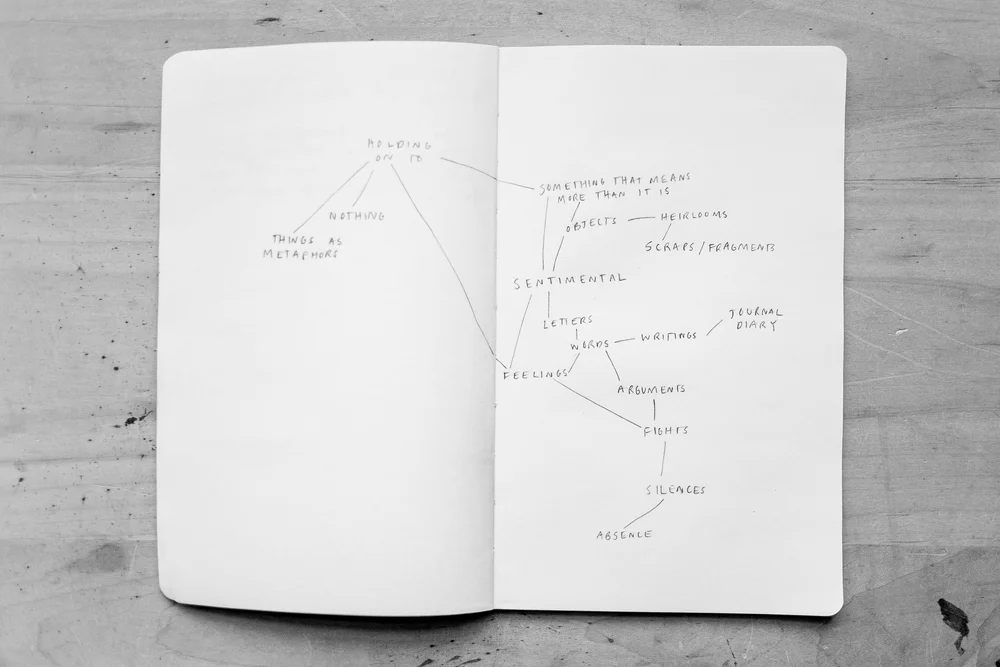 HOLDING
ON TO
NOTHING
THINGS AS
METAPHORS
SOMETHING THAT MEANS
MORE THAN IT IS
OBJECTS
HEIRLOOMS
SCRAPS/FRAGMENTS
SENTIMENTAL
LETTERS
WORDS
WRITINGS
JOURNAL
DIARY
FEELINGS
ARGUMENTS
FIGHTS
SILENCES
ABSENCE